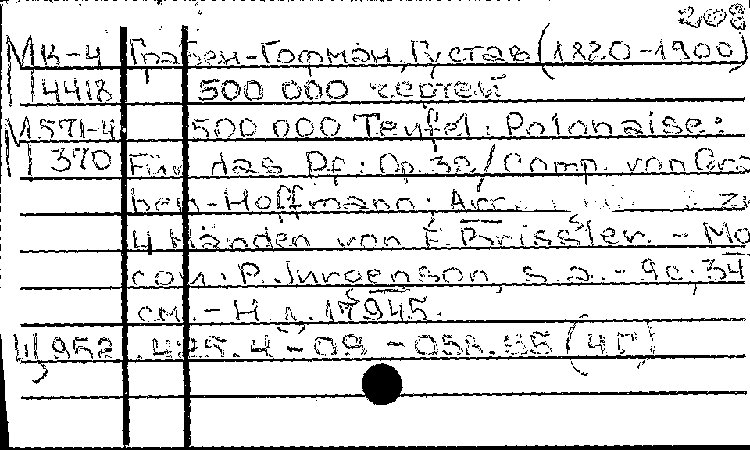 208
МК-4 Грабен-Гофман, Густав (1820-1900)
14418 500 000 чертей
М571-4 500 000 Teufel: Polonaise:
370 Für das Pf.: Op.32/Comp. von Gra-
ben-Hoffmann; Arr. zu
4 Händen von E. Brissler. - Mo
cou: P. Jurgenson, s.a. - 9c.; 34
см. - Н.д. 17945.
Ц952 .425.4-09-058.55 (4Г)